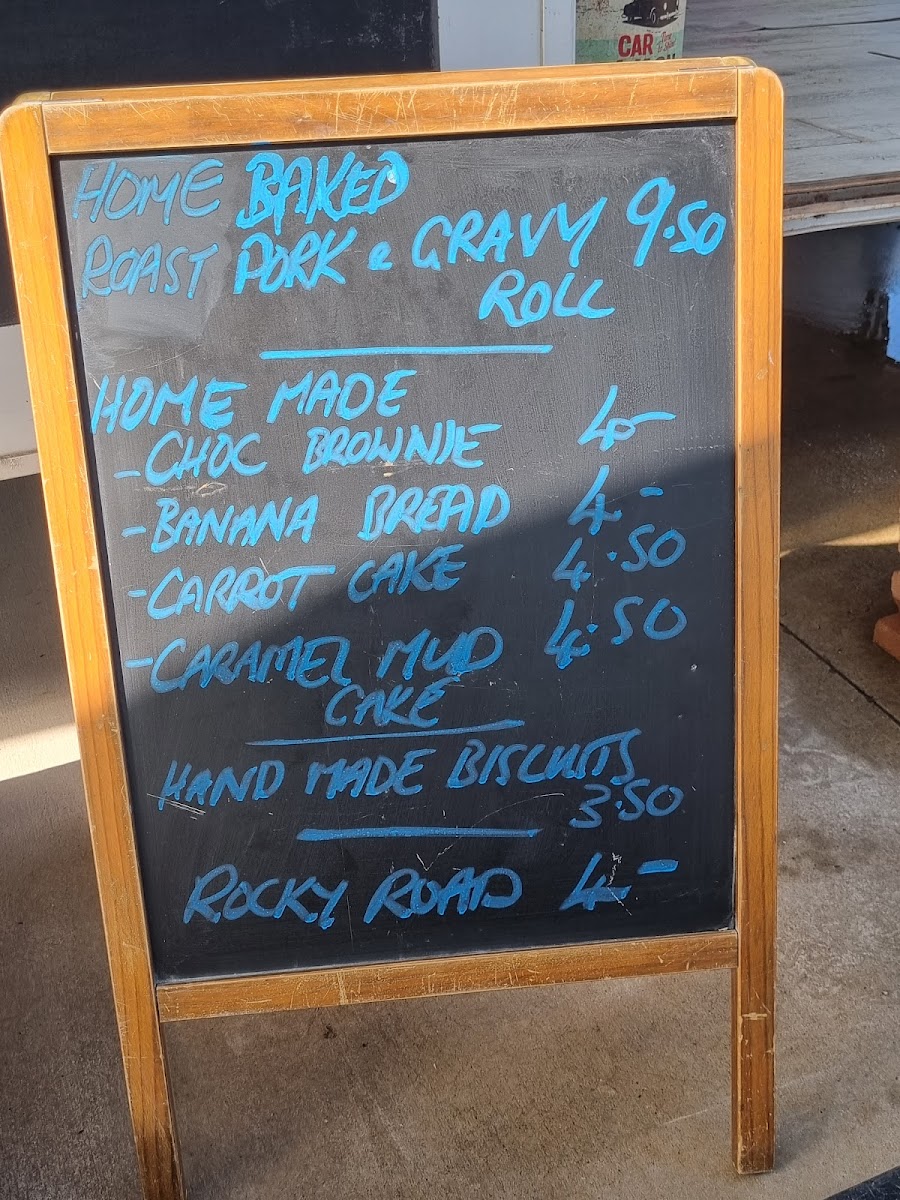 CAR
HOME BAKED
ROAST PORK & GRAVY 9.50
ROLL
HOME MADE
- CHOC BROWNIE 4-
- BANANA BREAD 4.-
- CARROT CAKE 4.50
- CARAMEL MUD 4.50
CAKE
HAND MADE BISCUITS
3.50
ROCKY ROAD 4-